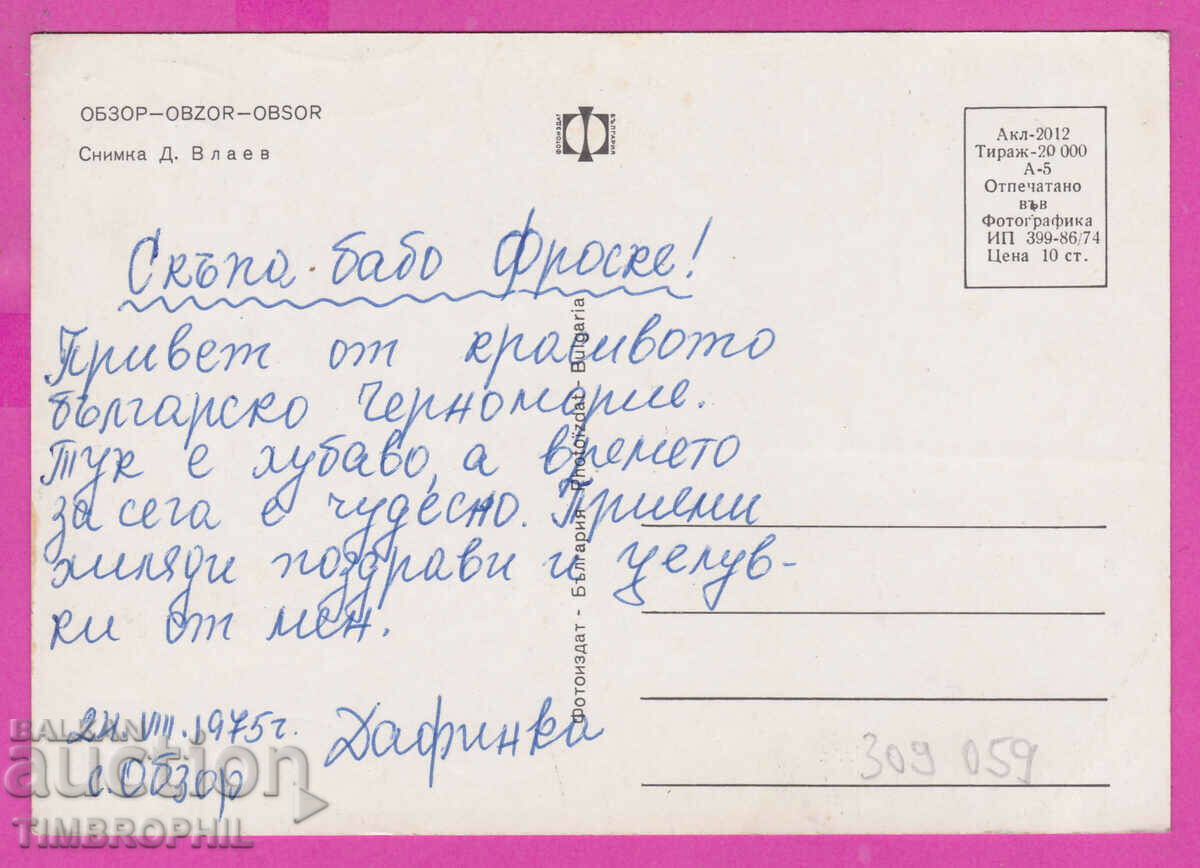 ОБЗОР—OBZOR—OBSOR
Снимка Д. Влаев
ФОТОИЗДАТ
БЪЛГАРИЯ
Акл-2012
Тираж-20 000
А-5
Отпечатано
във
Фотографика
ИП 399-86/74
Цена 10 ст.
Скъпа бабо Фроске!
Привет от красивото
българско Черноморие.
Тук е хубаво, а времето
за сега е чудесно. Приеми
хиляди поздрави и целув-
ки от мен.
24.VIII.1975г. Дафинка
с. Обзор
Фотоиздат - България Photoizdat - Bulgaria
309 059
BALKAN
auction
TIMBROPHIL